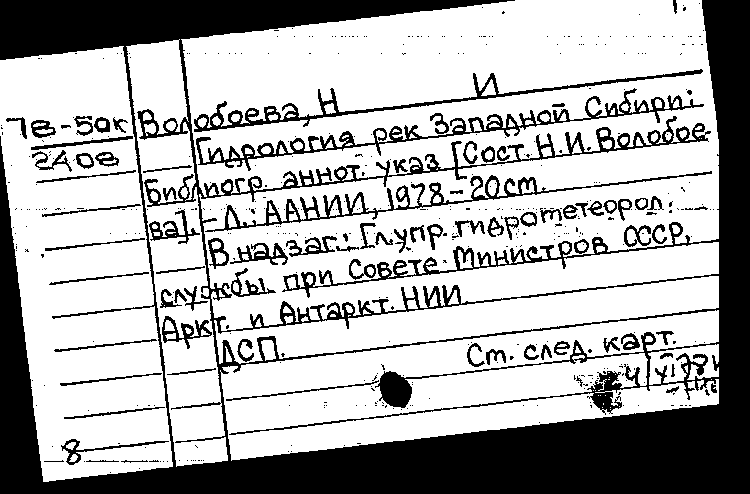 1.
7в-50к Волобоева, Н И
2408 Гидрология рек Западной Сибири:
Библиогр. аннот. указ [Сост. Н.И. Волобое-
ва]. - Л.: ААНИИ, 1978. - 20 cm.
В надзаг.: Гл. упр. гидрометеорол.
службы при Совете Министров СССР,
Аркт. и Антаркт. НИИ
ДСП.
Ст. след. карт.
8